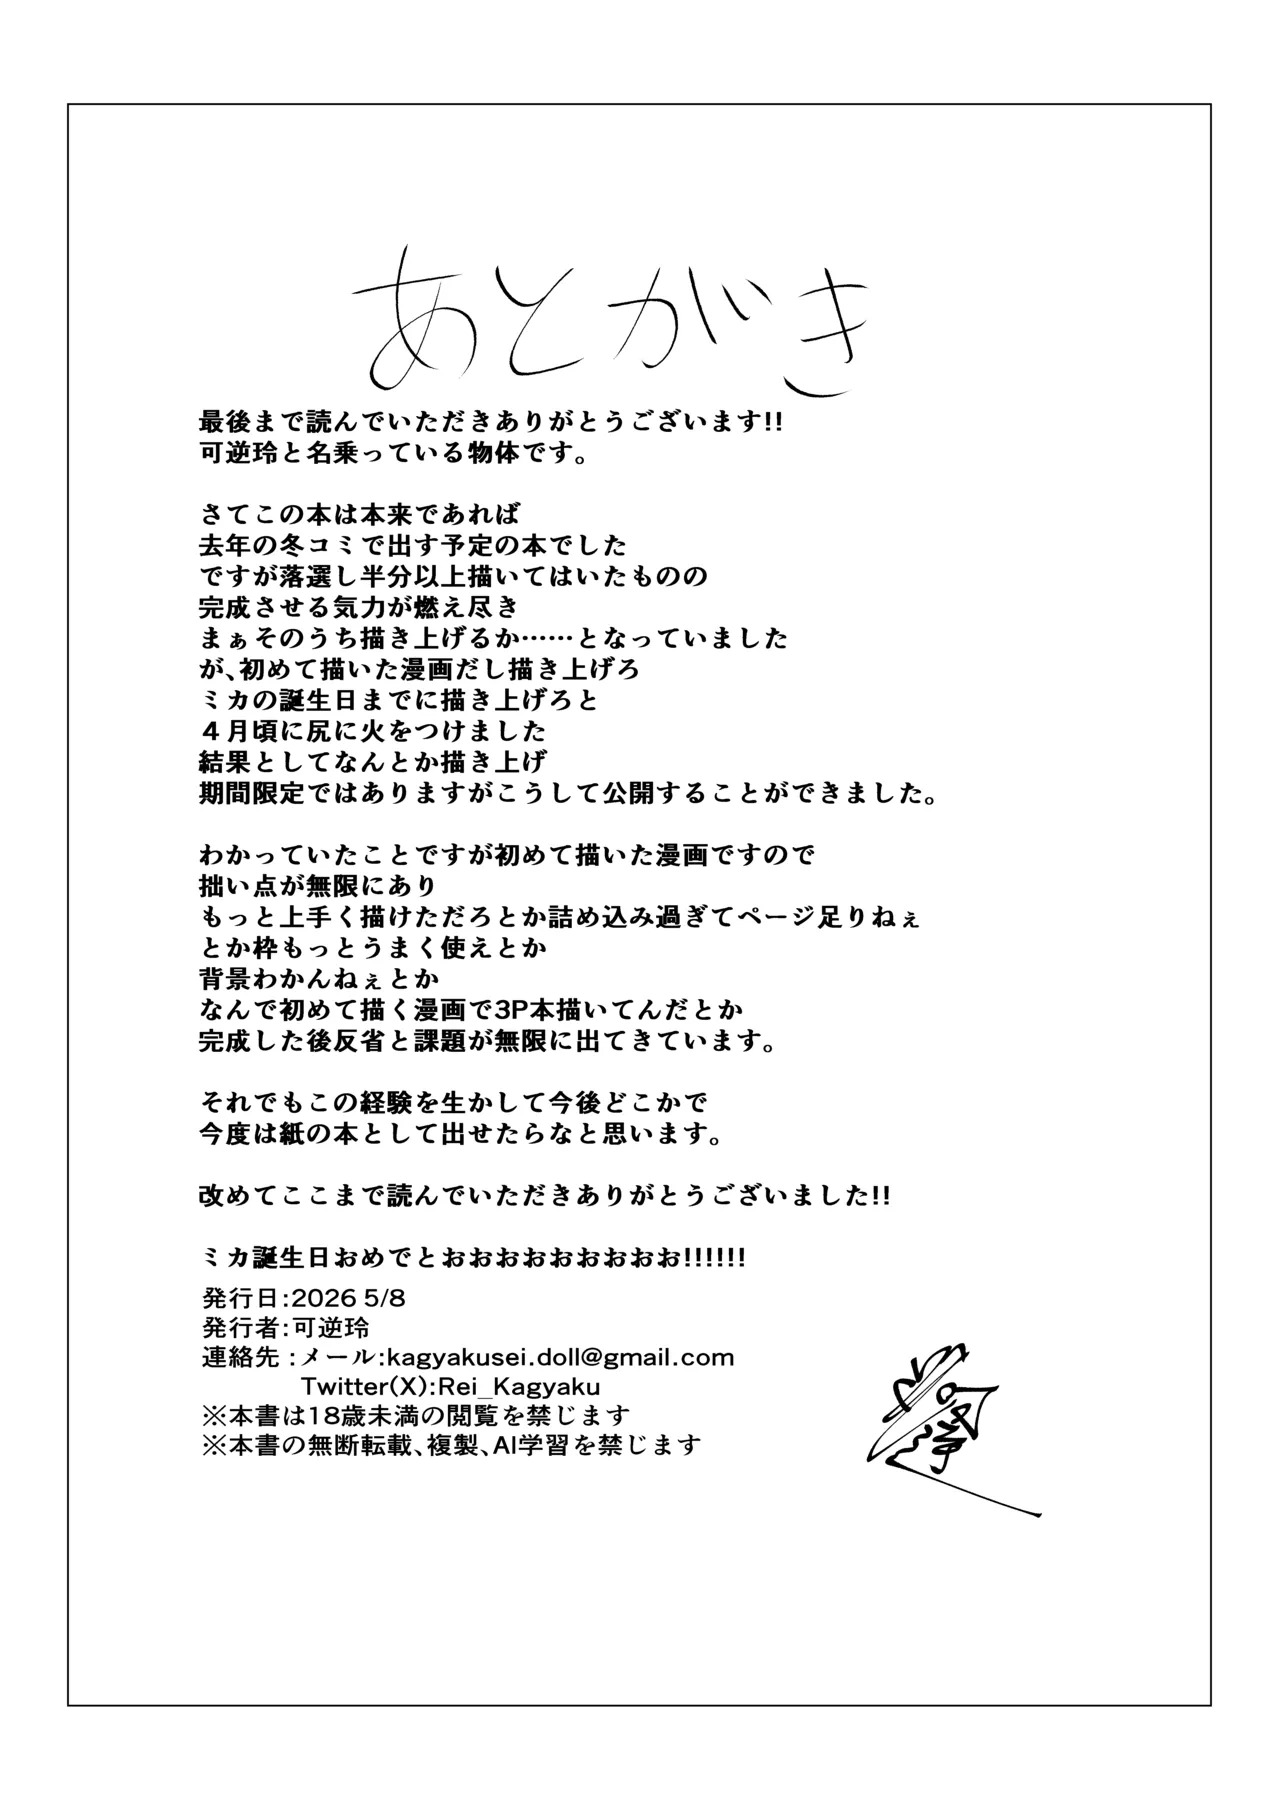 あとがき
最後まで読んでいただきありがとうございます!!
可逆玲と名乗っている物体です。
さてこの本は本来であれば
去年の冬コミで出す予定の本でした
ですが落選し半分以上描いてはいたものの
完成させる気力が燃え尽き
まぁそのうち描き上げるか……となっていました
が、初めて描いた漫画だし描き上げろ
ミカの誕生日までに描き上げろと
４月頃に尻に火をつけました
結果としてなんとか描き上げ
期間限定ではありますがこうして公開することができました。
わかっていたことですが初めて描いた漫画ですので
拙い点が無限にあり
もっと上手く描けただろとか詰め込み過ぎてページ足りねぇ
とか枠もっとうまく使えとか
背景わかんねぇとか
なんで初めて描く漫画で3P本描いてんだとか
完成した後反省と課題が無限に出てきています。
それでもこの経験を生かして今後どこかで
今度は紙の本として出せたらなと思います。
改めてここまで読んでいただきありがとうございました!!
ミカ誕生日おめでとおおおおおおおおお!!!!!!
発行日:2026 5/8
発行者:可逆玲
連絡先 :メール:kagyakusei.doll@gmail.com
Twitter(X):Rei_Kagyaku
※本書は18歳未満の閲覧を禁じます
※本書の無断転載、複製、AI学習を禁じます